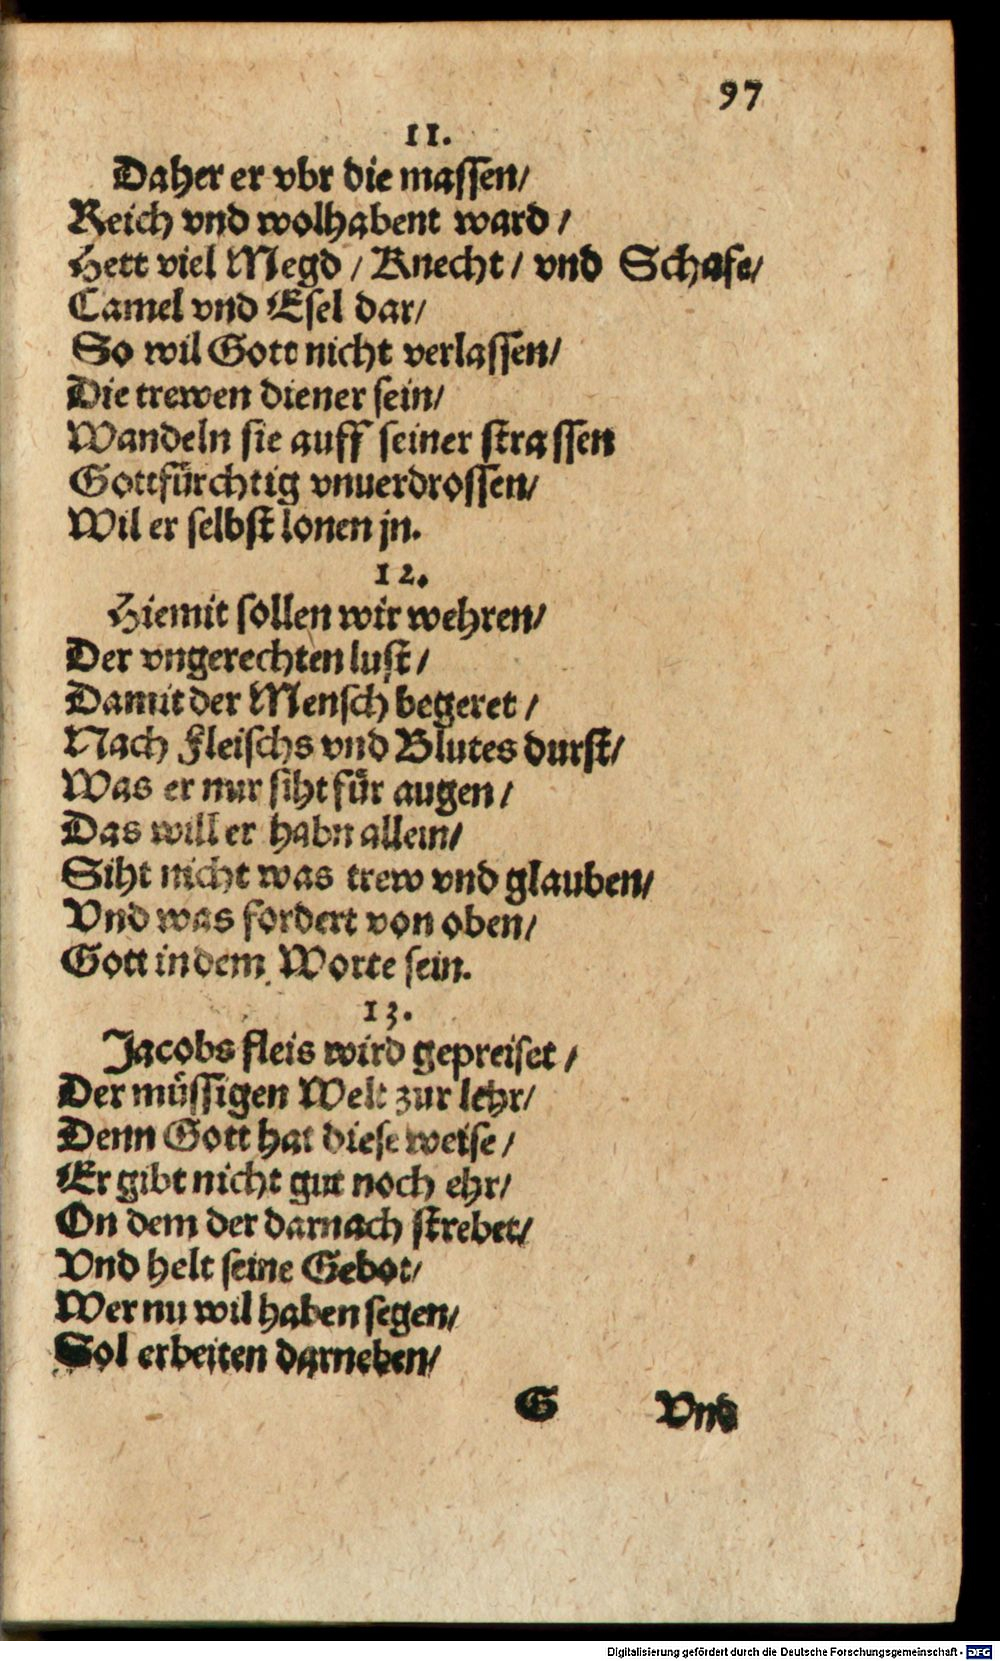 97
11.
Daher er vbr die massen/
Reich vnd wolhabent ward /
Hett viel Megd / Knecht / vnd Schafe/
Camel vnd Esel dar/
So wil Gott nicht verlassen/
Die trewen diener sein/
Wandeln sie auff seiner strassen
Gottfürchtig vnuerdrossen/
Wil er selbst lonen jn.
12.
Hiemit sollen wir wehren/
Der vngerechten lust /
Damit der Mensch begeret /
Nach Fleischs vnd Blutes durst/
Was er nur siht für augen /
Das will er habn allein/
Siht nicht was trew vnd glauben/
Vnd was fordert von oben/
Gott in dem Worte sein.
13.
Jacobs fleis wird gepreiset /
Der müssigen Welt zur lehr/
Denn Gott hat diese weise /
Er gibt nicht gut noch ehr/
On dem der darnach strebet/
Vnd helt seine Gebot/
Wer nu wil haben segen/
Sol erbeiten darneben/
G Vnd
Digitalisierung gefördert durch die Deutsche Forschungsgemeinschaft - DFG